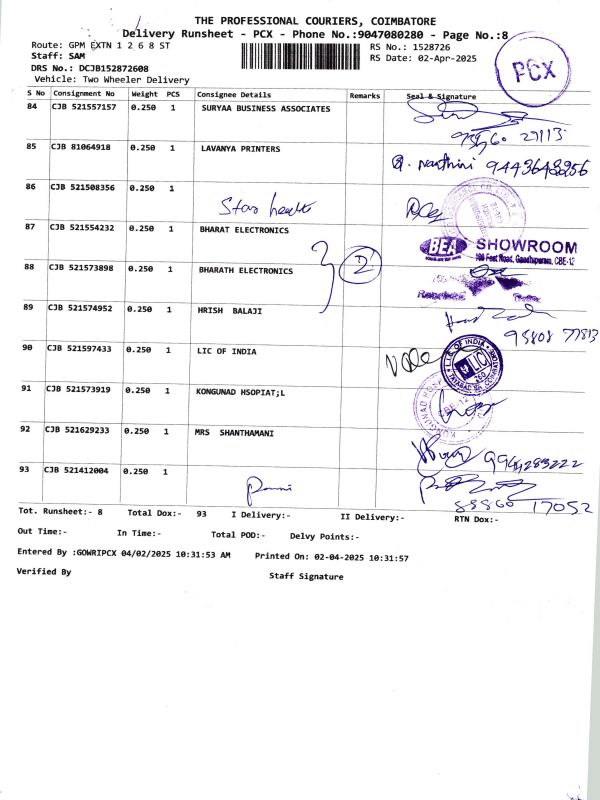 THE PROFESSIONAL COURIERS, COIMBATORE
Delivery Runsheet - PCX - Phone No.:9047080280 - Page No.:8
Route: GPM EXTN 1 2 6 8 ST
RS No.: 1528726
Staff: SAM
RS Date: 02-Apr-2025
DRS No.: DCJB152872608
Vehicle: Two Wheeler Delivery
PCX
S No Consignment No Weight PCS Consignee Details Remarks Seal & Signature
84 CJB 521557157 0.250 1 SURYAA BUSINESS ASSOCIATES
27113
85 CJB 81064918 0.250 1 LAVANYA PRINTERS
9443648256
86 CJB 521508356 0.250 1
Star health
87 CJB 521554232 0.250 1 BHARAT ELECTRONICS
BEA SHOWROOM
100 Feet Road, Gandhipuram, CBE-12
88 CJB 521573898 0.250 1 BHARATH ELECTRONICS
2
89 CJB 521574952 0.250 1 HRISH BALAJI
95808 77813
90 CJB 521597433 0.250 1 LIC OF INDIA
L.I.C. OF INDIA
LIC
91 CJB 521573919 0.250 1 KONGUNAD HSOPIAT;L
92 CJB 521629233 0.250 1 MRS SHANTHAMANI
9944283222
93 CJB 521412004 0.250 1
88860 17052
Tot. Runsheet:- 8 Total Dox:- 93 I Delivery:- II Delivery:- RTN Dox:-
Out Time:- In Time:- Total POD:- Delvy Points:-
Entered By :GOWRIPCX 04/02/2025 10:31:53 AM Printed On: 02-04-2025 10:31:57
Verified By Staff Signature